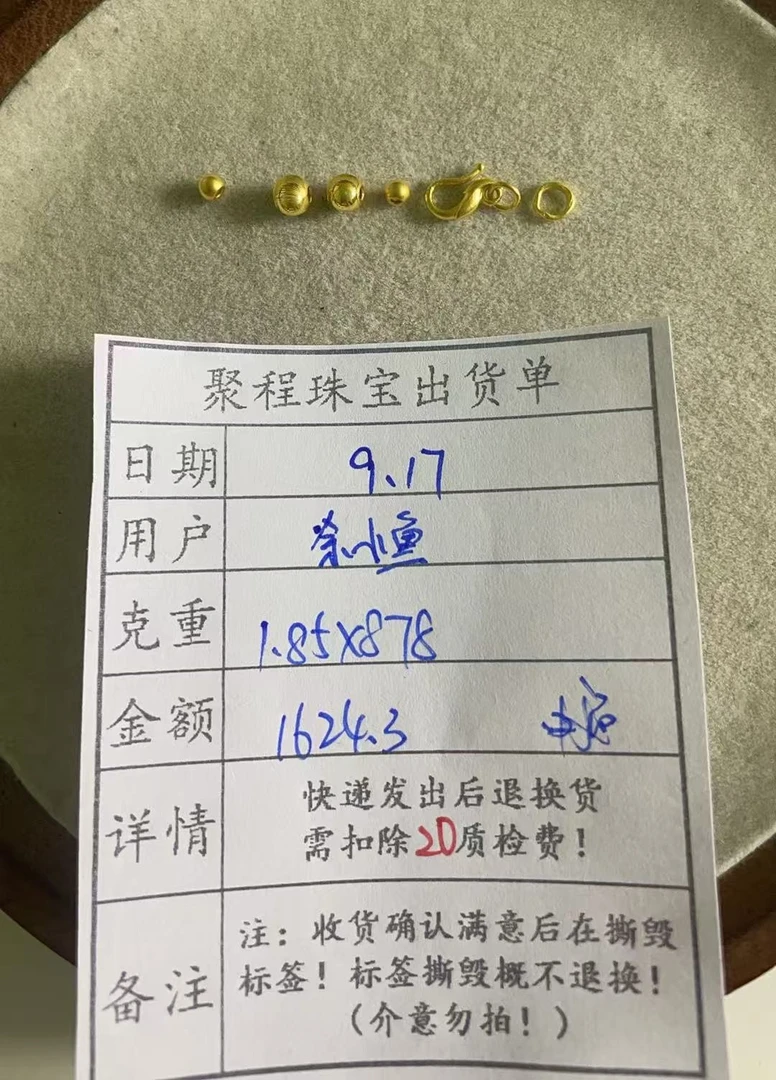 聚程珠宝出货单
日期 9.17
用户
克重 1.85X878
金额 1624.3
详情 快递发出后退换货
需扣除20质检费！
备注 注：收货确认满意后在撕毁
标签！标签撕毁概不退换！
（介意勿拍！）